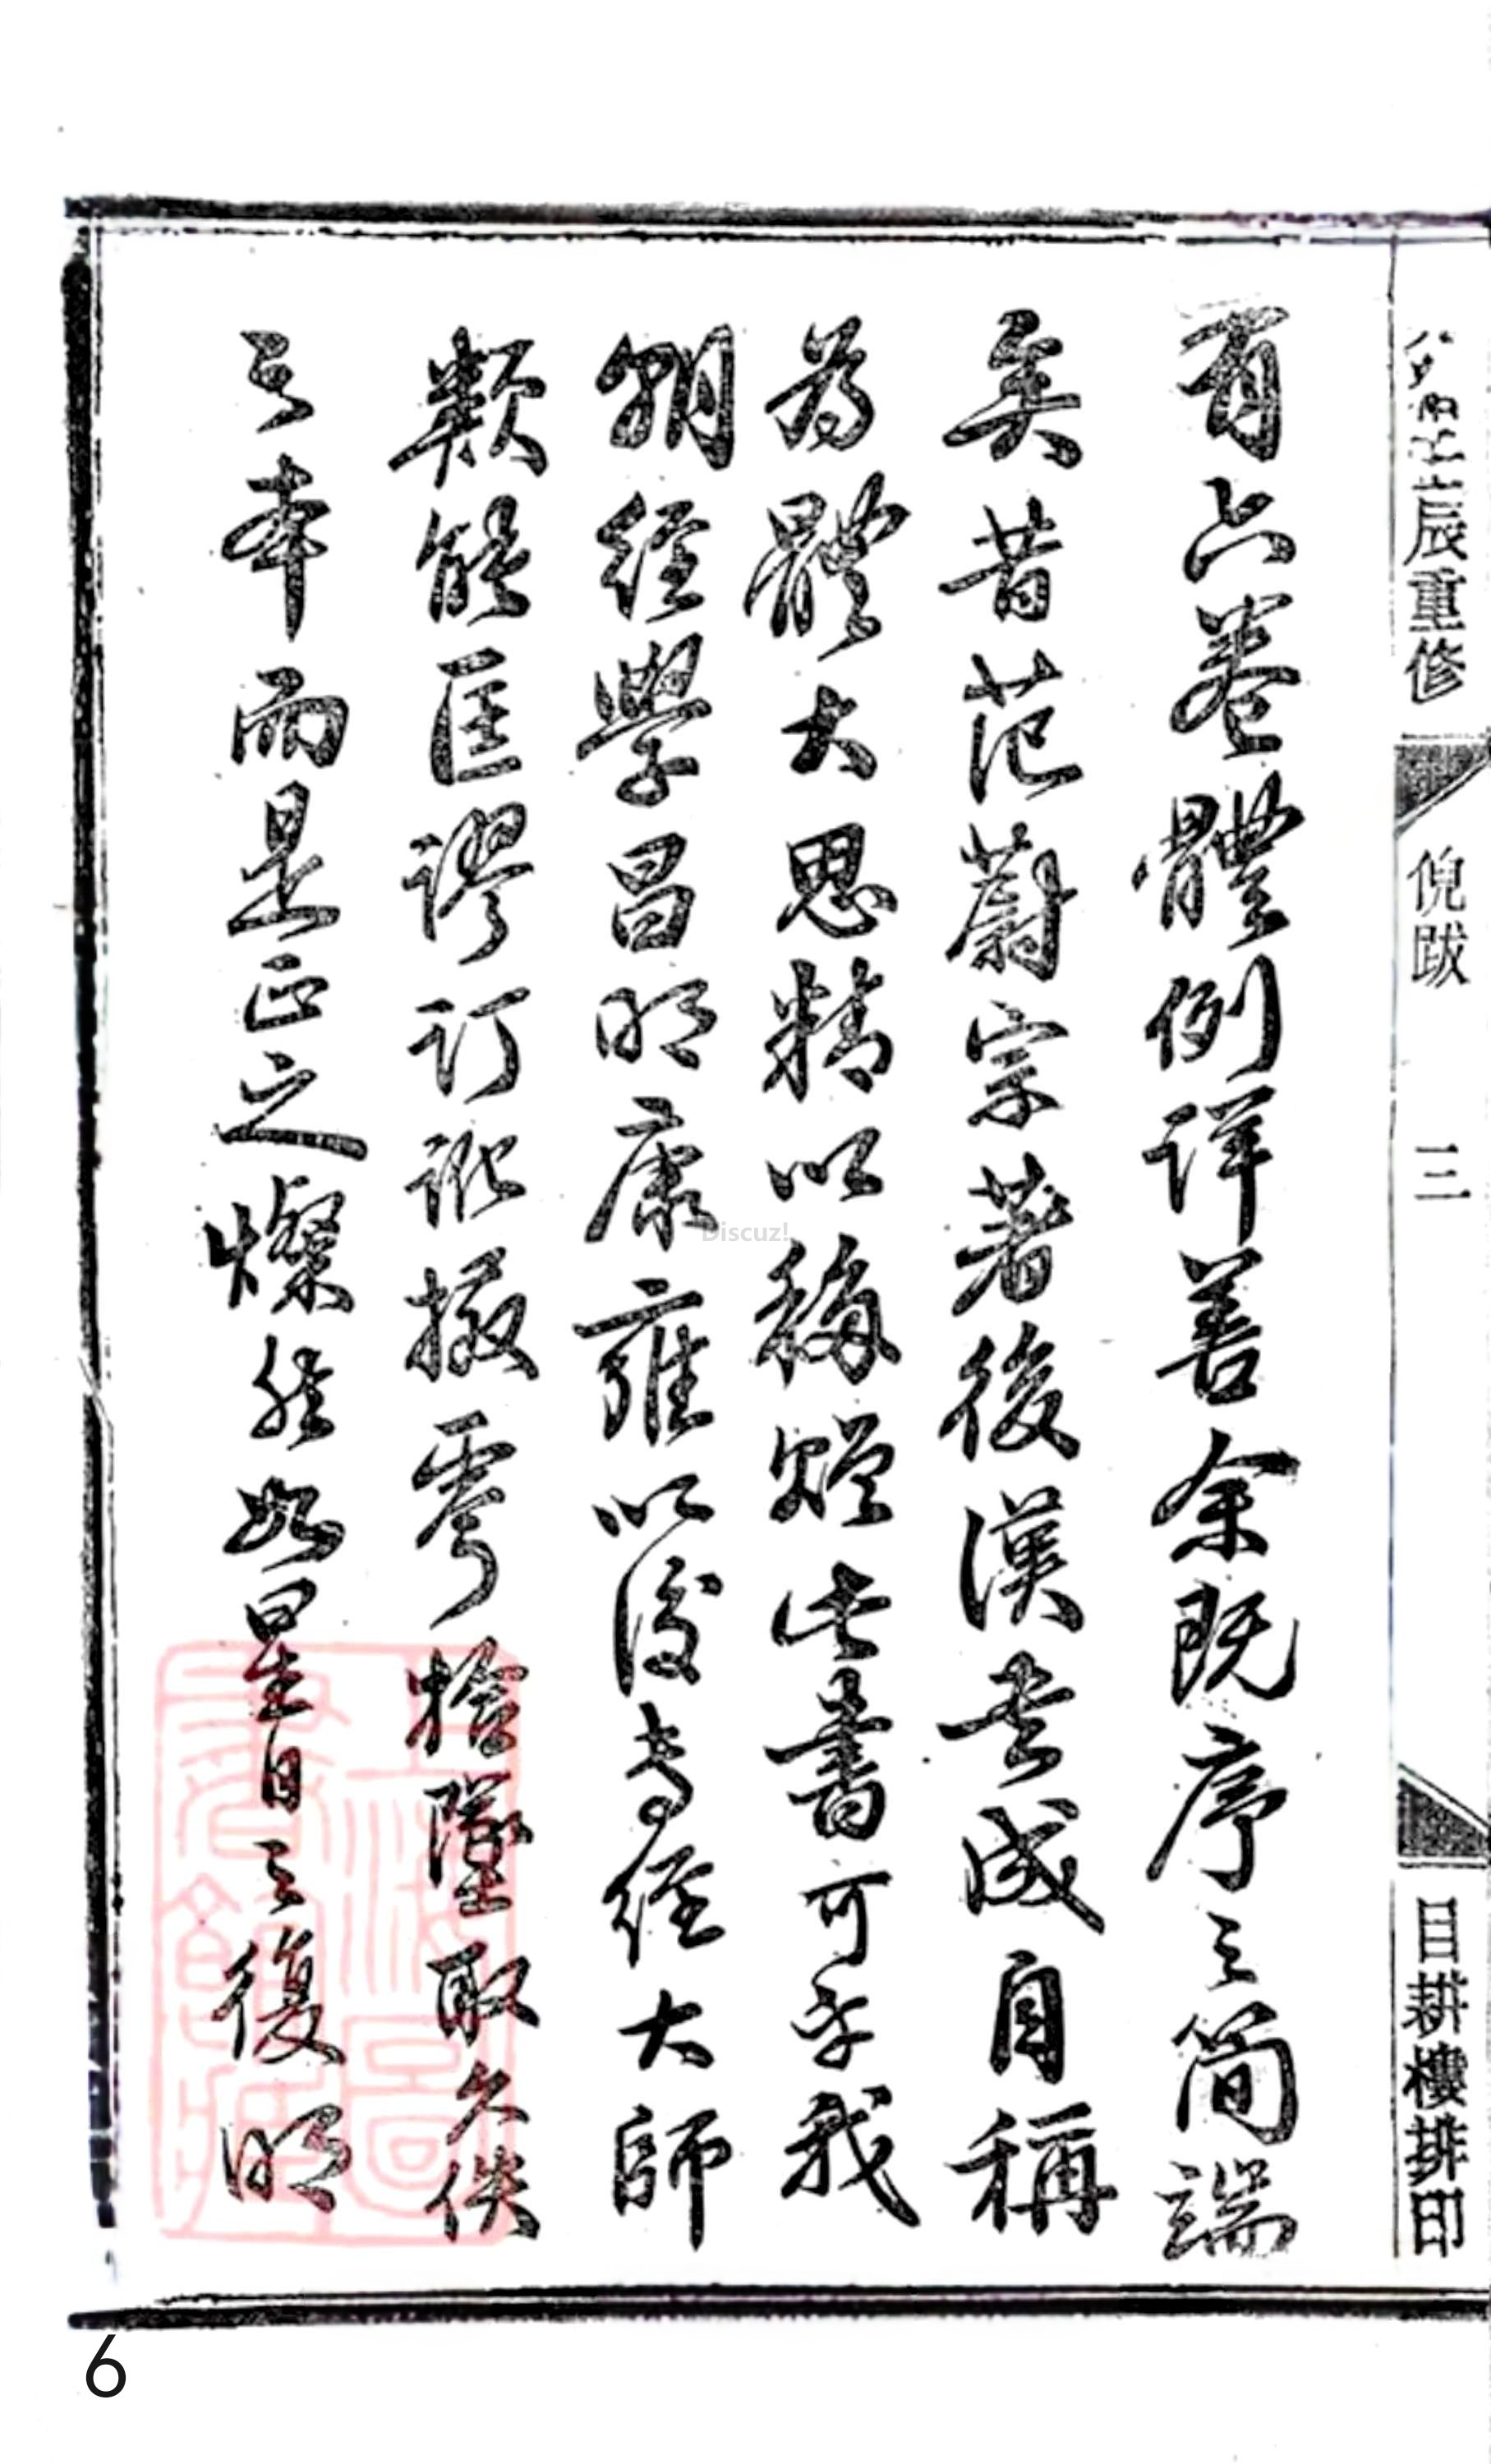 辰重修
倪跋
三
目耕樓排印
有六卷體例詳善余既序之簡端
矣昔范蔚宗著後漢書成自稱
為體大思精以稱贈此書可乎我
朝經學昌明康雍以後專經大師
類能匡謬訂訛掇零拾墜取久佚
之本而是正之燦然如星日之復明
Discuz!
6